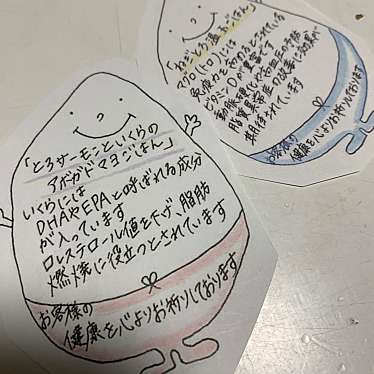 「とろサーモンといくらの
アボガドマヨごはん」
いくらには
DHAやEPAと呼ばれる成分
が入っています
コレステロール値を下げ、脂肪
燃焼に役立つとされています
お客様の
健康を心よりお祈りしております
「ねぎとろ温
ごはん」
マグロ(トロ)には
ビタミンDが豊富です
動脈硬化や高血圧の予防
脂質異常症の改善に効果が
期待されています
お客様の
健康を心よりお祈りしております